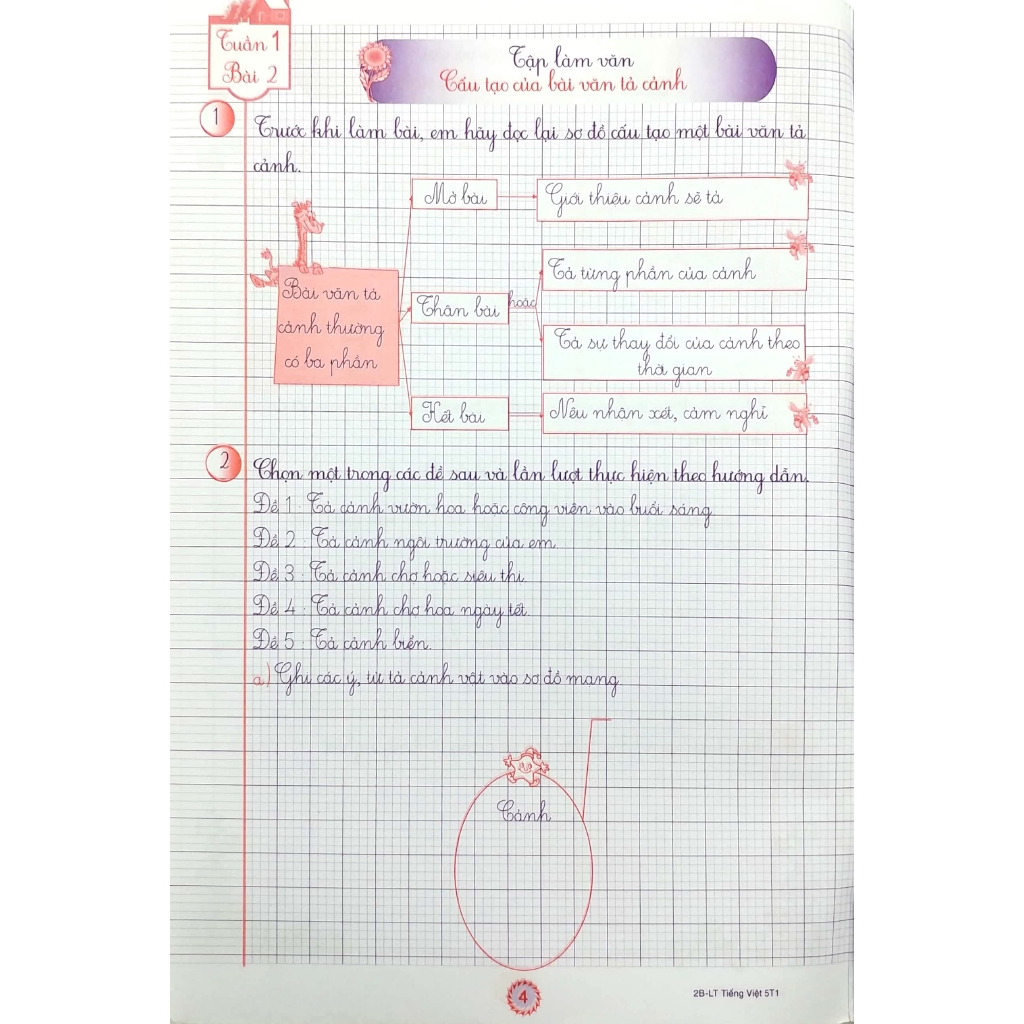 Tuần 1
Bài 2
Tập làm văn
Cấu tạo của bài văn tả cảnh
1
Trước khi làm bài, em hãy đọc lại sơ đồ cấu tạo một bài văn tả
cảnh.
Mở bài
Giới thiệu cảnh sẽ tả
Bài văn tả
cảnh thường
có ba phần
Thân bài
hoặc
Tả từng phần của cảnh
Tả sự thay đổi của cảnh theo
thời gian
Kết bài
Nêu nhận xét, cảm nghĩ
2
Chọn một trong các đề sau và lần lượt thực hiện theo hướng dẫn.
Đề 1 : Tả cảnh vườn hoa hoặc công viên vào buổi sáng.
Đề 2 : Tả cảnh ngôi trường của em.
Đề 3 : Tả cảnh chợ hoặc siêu thị.
Đề 4 : Tả cảnh chợ hoa ngày tết.
Đề 5 : Tả cảnh biển.
a) Ghi các ý, từ tả cảnh vật vào sơ đồ mạng
Cảnh
4
2B-LT Tiếng Việt 5T1